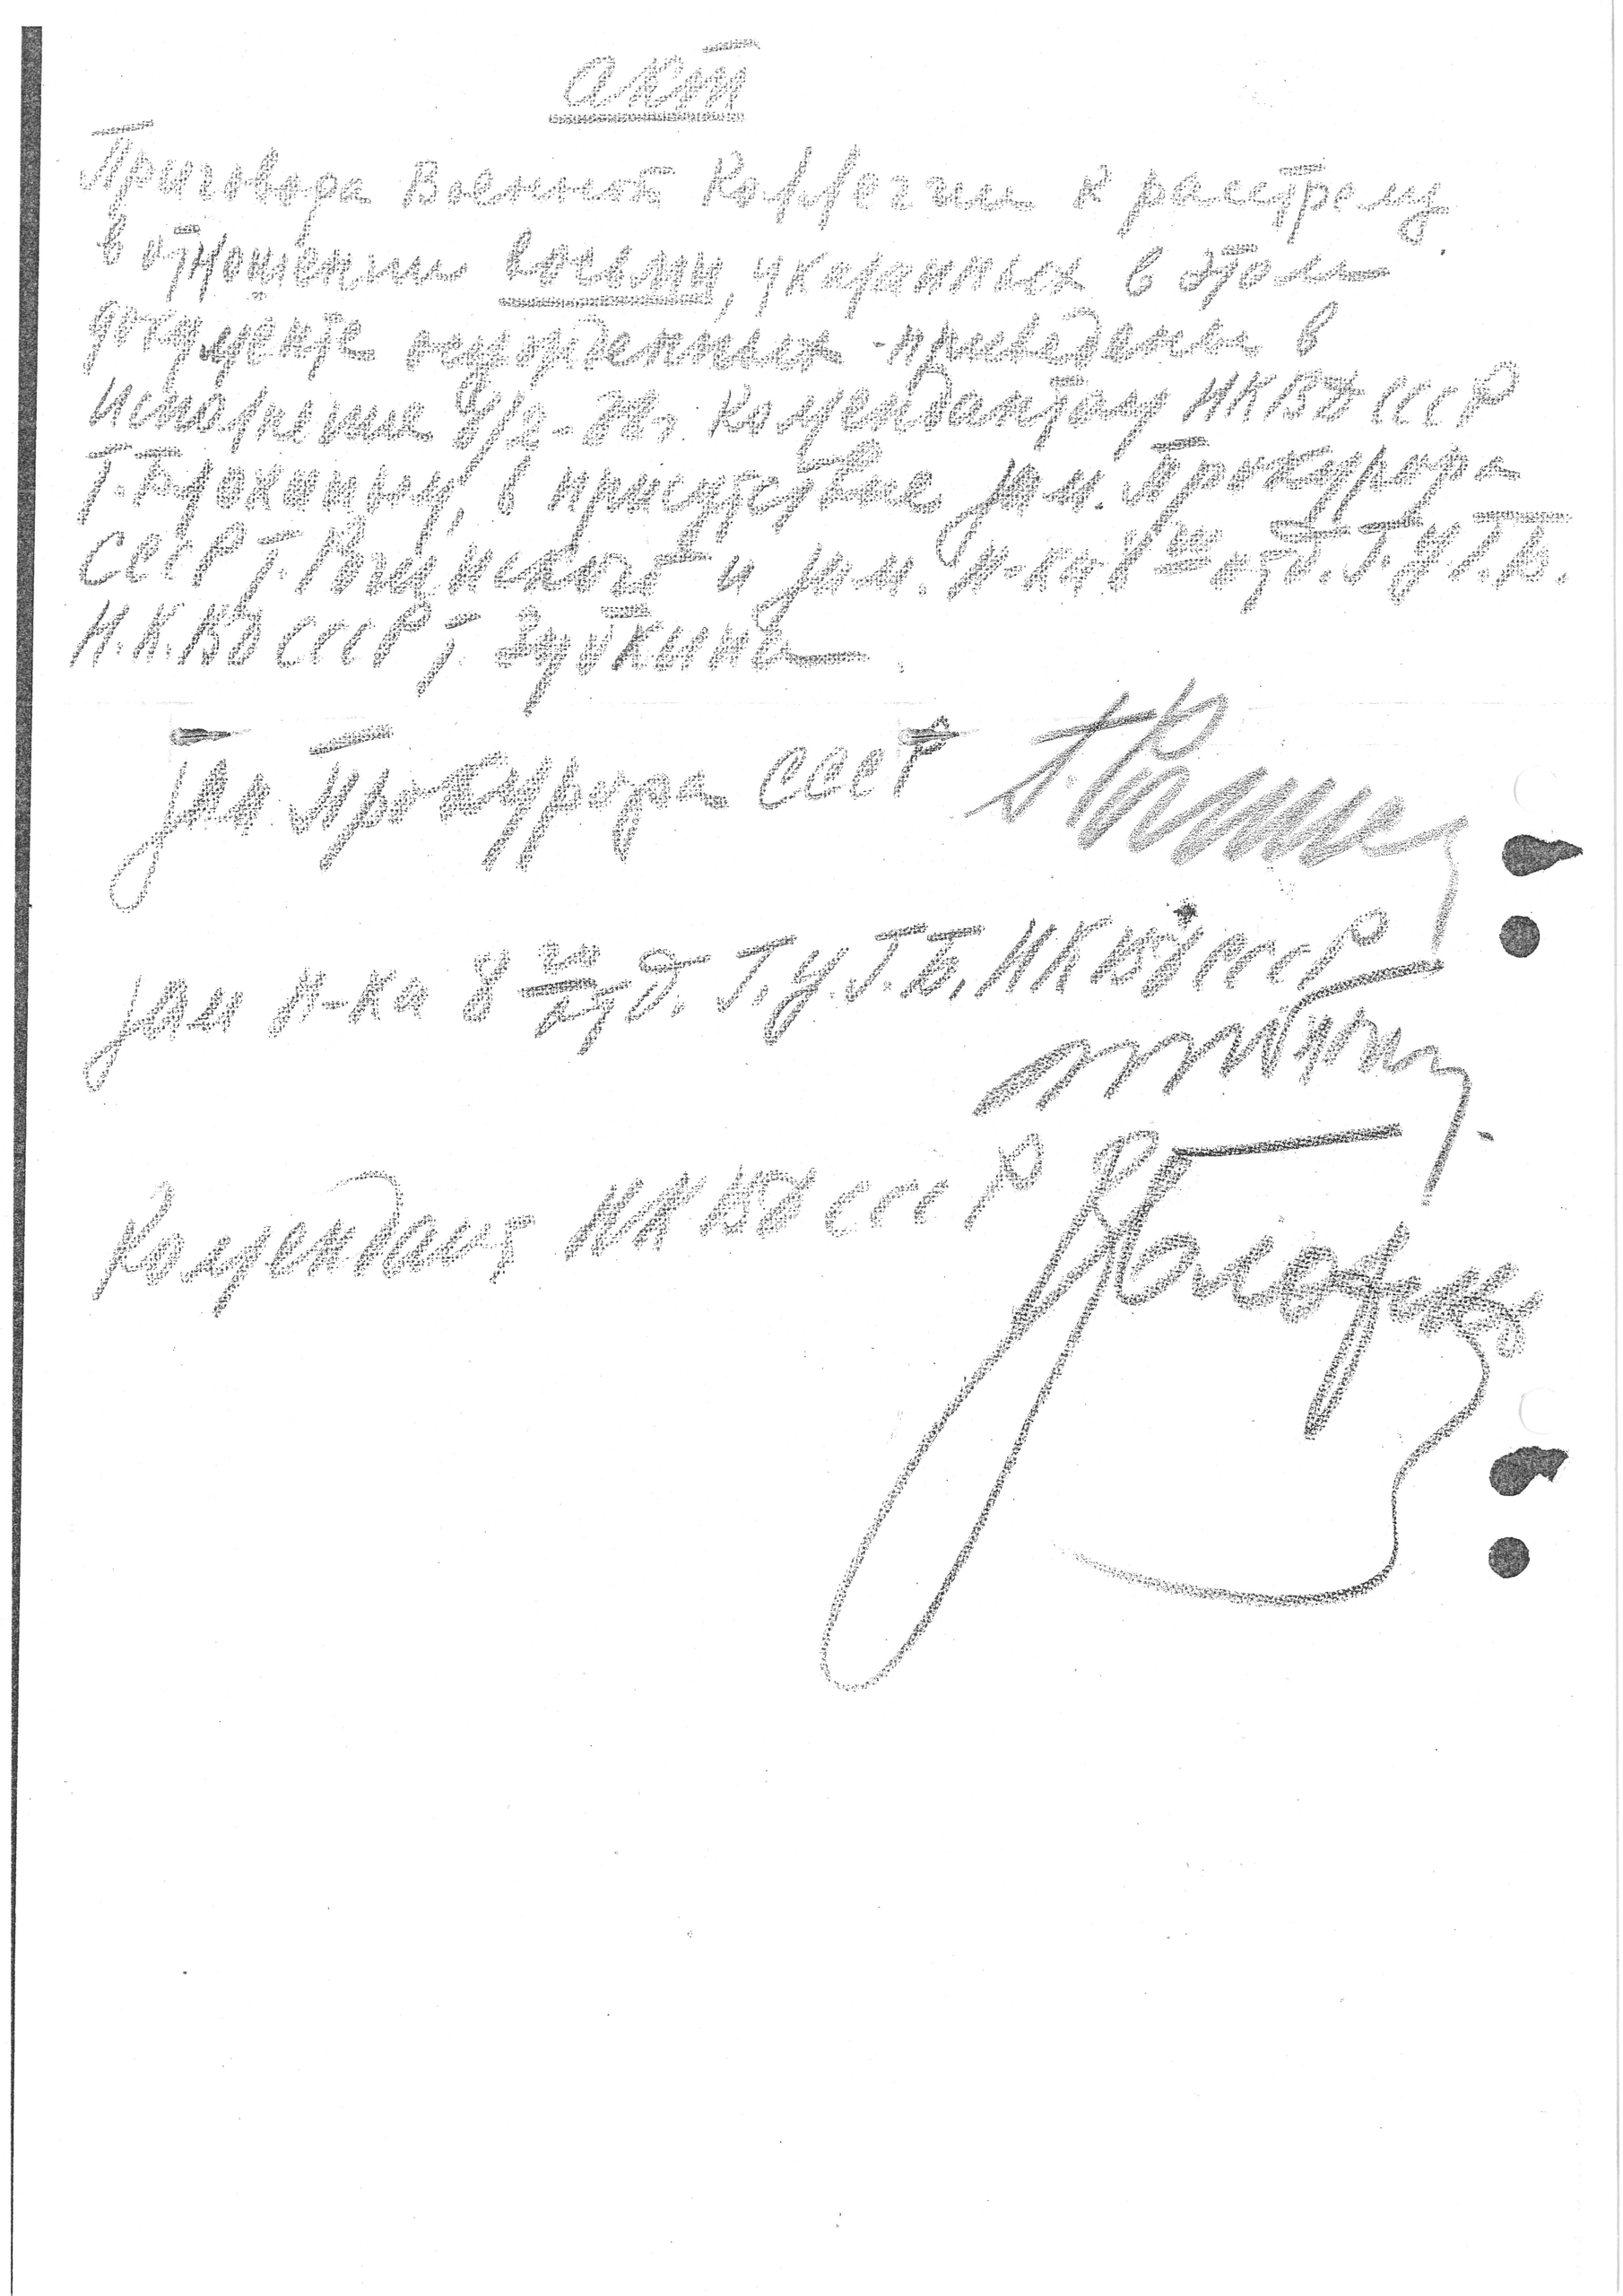 Акт
Приговора Военной Коллегии к расстрелу
в отношении восьми, указанных в этом
документе осужденных - приведены в
исполнение 8/2-38г. Комендантом НКВД СССР
т. Блохиным, в присутствие зам. Прокурора
СССР т. Рогинского и зам. н-ка 8го отд. Г.У.Г.Б.
Н.К.ВД СССР т. Зубкина.
Зам Прокурора СССР
Зам н-ка 8го отд. Г.У.Г.Б. НКВД СССР
Комендант НКВД СССР